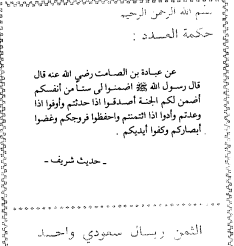 بسم الله الرحمن الرحيم
حكمة العدد :
عن عبادة بن الصامت رضي الله عنه قال
قال رسول الله ﷺ اضمنوا لى ستاً من أنفسكم
أضمن لكم الجنة أصدقوا اذا حدثتم وأوفوا اذا
وعدتم وأدوا اذا ائتمنتم واحفظوا فروجكم وغضوا
أبصاركم وكفوا أيديكم .
ـ حديث شريف ـ
الثمن ريال سعودي واحد